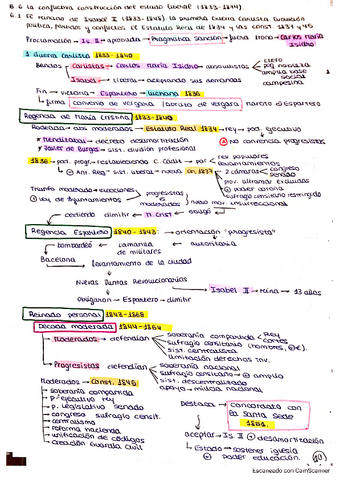 B.6 La conflictiva construcción del estado liberal (1833-1874).
6.1 El reinado de Isabel II (1833-1868) la primera guerra carlista. Evolución
política, partidos y conflictos. El Estatuto Real de 1834 y las const. 1837 y 45
Proclamación → Is. II → apoyada → Pragmática Sanción → fuera trono → Carlos María Isidro
1 Guerra Carlista 1833-1840
Bandos
Carlistas → Carlos María Isidro → absolutistas
clero
amplia base social campesina
Isabel → liberal → aceptando sus demandas
Fin → victoria → Espartero → 1836
firma → convenio de vergara / abrazo de vergara → Maroto e Espartero
Regencia de María Cristina 1833-1840
Moderada → abs moderados → Estatuto Real 1834 → rey → pod. ejecutivo
* Mendizábal → decreto desamortización
* Javier de Burgos → sist. división provincial
No convencía progresistas
1836 → pod. prog. → restablecimiento C. Cádiz → por
rev populares
levantamientos
sist. liberal → nueva Cn. 1837
2 cámaras
congreso
senado
poder corona
sufragio censitario restringido
Triunfo moderados → elecciones
Ley de Ayuntamientos
progresistas vs moderados
nuevo mov. insurreccional
cediendo dimitir ← M. Crist ← obligó
Regencia Espartero 1840-1843: → orientación "progresista"
bombardeó ← camarilla de militares ← autoritaria
Barcelona → levantamiento de la ciudad
Nuevas Juntas Revolucionarias
Obligaron → Espartero → dimitir
Isabel II → reina → 13 años
Reinado personal 1843-1868
Década moderada 1844-1854
Moderados → defendían
soberanía compartida
Rey
cortes
sufragio censitario (hombres, €).
sist. centralista
limitación derechos inv.
Progresistas → defendían
soberanía nacional
sufragio censitario → amplio
sist. descentralizado
apoyo → milicia nacional
Moderados → Const. 1845
soberanía compartida
p. ejecutivo rey
p. legislativo senado
congreso sufragio censit.
centralismo
reforma hacienda
unificación de códigos
creación guardia civil
Destaca → concordato con la Santa Sede 1851.
aceptar → Is. II → desamortización
Estado → sostener iglesia
poder educación.
Escaneado con CamScanner